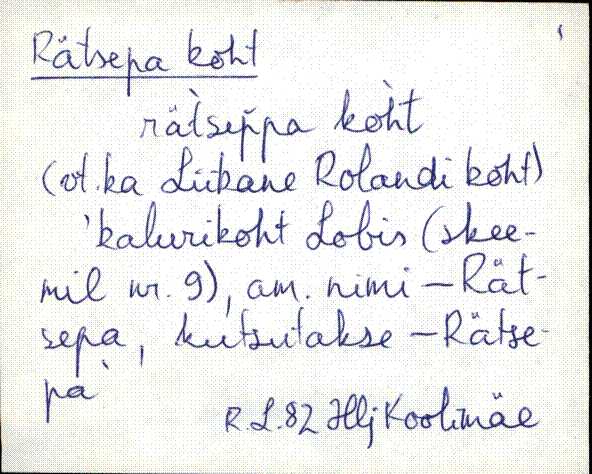 Rätsepa koht
rätsep̆pa koht
(vt. ka Liikane Rolandi koht)
'kalurikoht Lobis (skee-
mil nr. 9), am. nimi – Rät-
sepa, kutsutakse – Rätse-
pa'
R. L. 82 Hlj Koolimäe